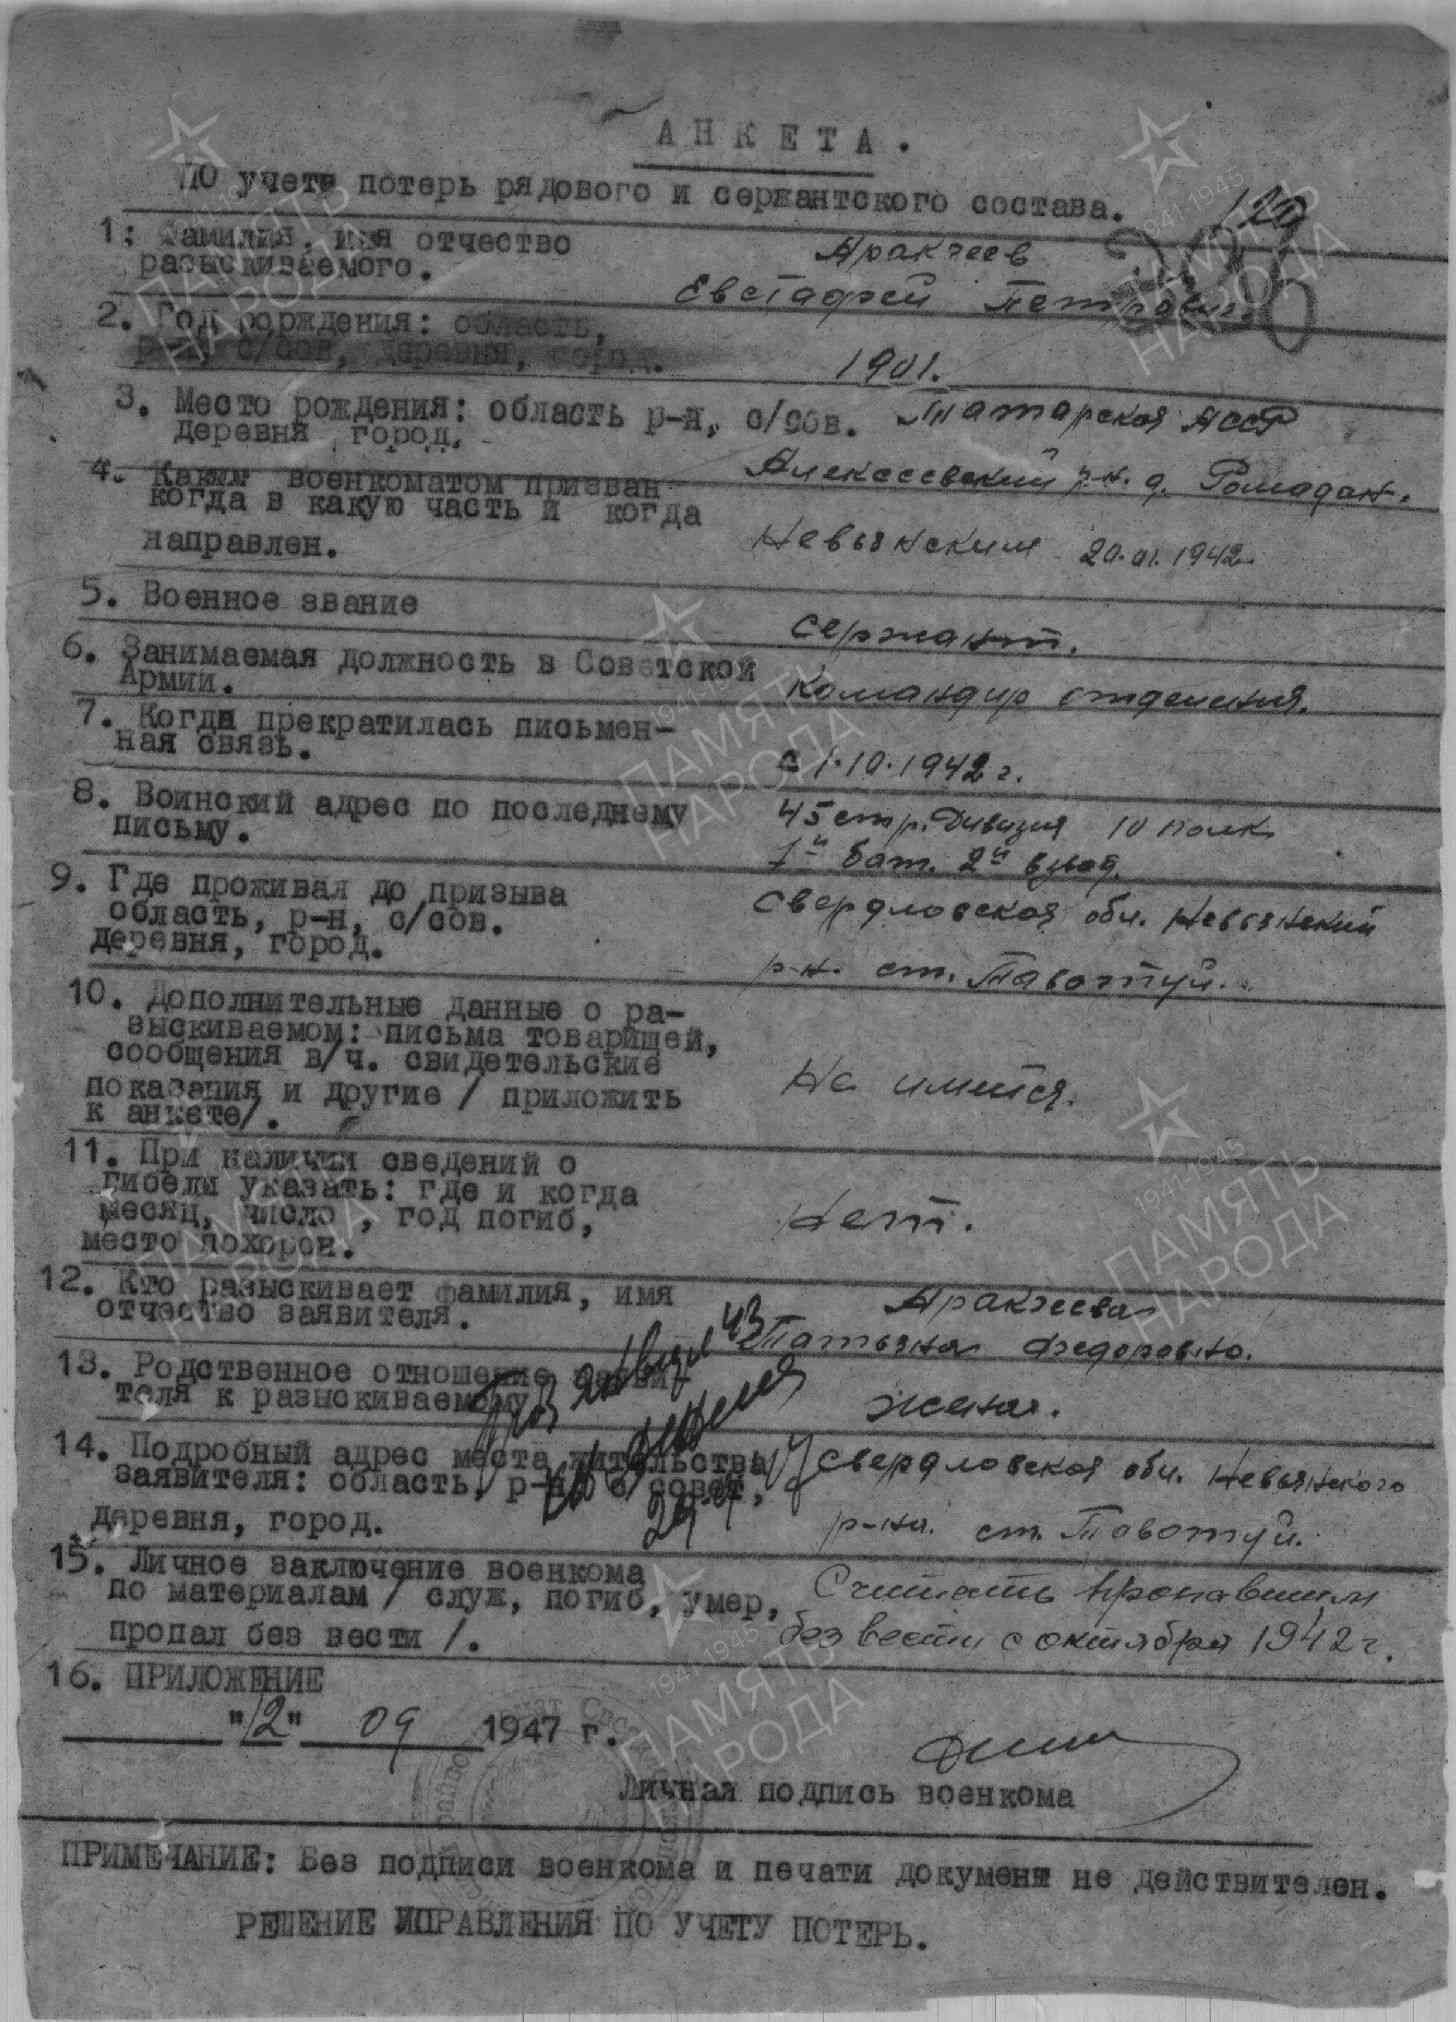 АНКЕТА.
ПО учете потерь рядового и сержантского состава.
120
1; Фамилия, имя отчество
Аракчеев
разыскиваемого.
Евстафей Петрович.
2. Год рорждения: область,
р-н, с/сов, деревня, город.
1901.
3. Место рождения: область р-н, с/сов. Татарская АССР
деревня город.
Алексеевский р-н. д. Ромадан.
4. Каким военкоматом призван
когда в какую часть и когда
направлен.
Невьянским 20.01.1942
5. Военное звание
сержант.
6. Занимаемая должность в Советской
Армии.
Командир отделения.
7. Когда прекратилась письмен-
ная связь.
с 1.10.1942 г.
8. Воинский адрес по последнему
письму.
45 стр. Дивизия 10 полк
1й бат. 2й взвод.
9. Где проживал до призыва
область, р-н, с/сов.
деревня, город.
Свердловская обл. Невьянский
р-н. ст. Таватуй.
10. Дополнительные данные о ра-
зыскиваемом: письма товарищей,
сообщения в/ч. свидетельские
показания и другие / приложить
к анкете/.
Не имется.
11. При наличии сведений о
гибели указать: где и когда
месяц, число , год погиб,
место похорон.
Нет.
12. Кто разыскивает фамилия, имя
отчество заявителя.
Аракчеева
Татьяна Федоровна.
13. Родственное отношение заяви-
теля к разыскиваемому
жена.
14. Подробный адрес места жительства
заявителя: область, р-н, с совет,
деревня, город.
Свердловская обл. Невьянского
р-на. ст. Таватуй.
15. Личное заключение военкома
по материалам / служ, погиб, умер,
пропал без вести /.
Считать пропавшим
без вести с октября 1942 г.
16. ПРИЛОЖЕНИЕ
"12" 09 1947 г.
Личная подпись военкома
ПРИМЕЧАНИЕ: Без подписи военкома и печати документ не действителен.
РЕШЕНИЕ УПРАВЛЕНИЯ ПО УЧЕТУ ПОТЕРЬ.
1941-1945
ПАМЯТЬ
НАРОДА